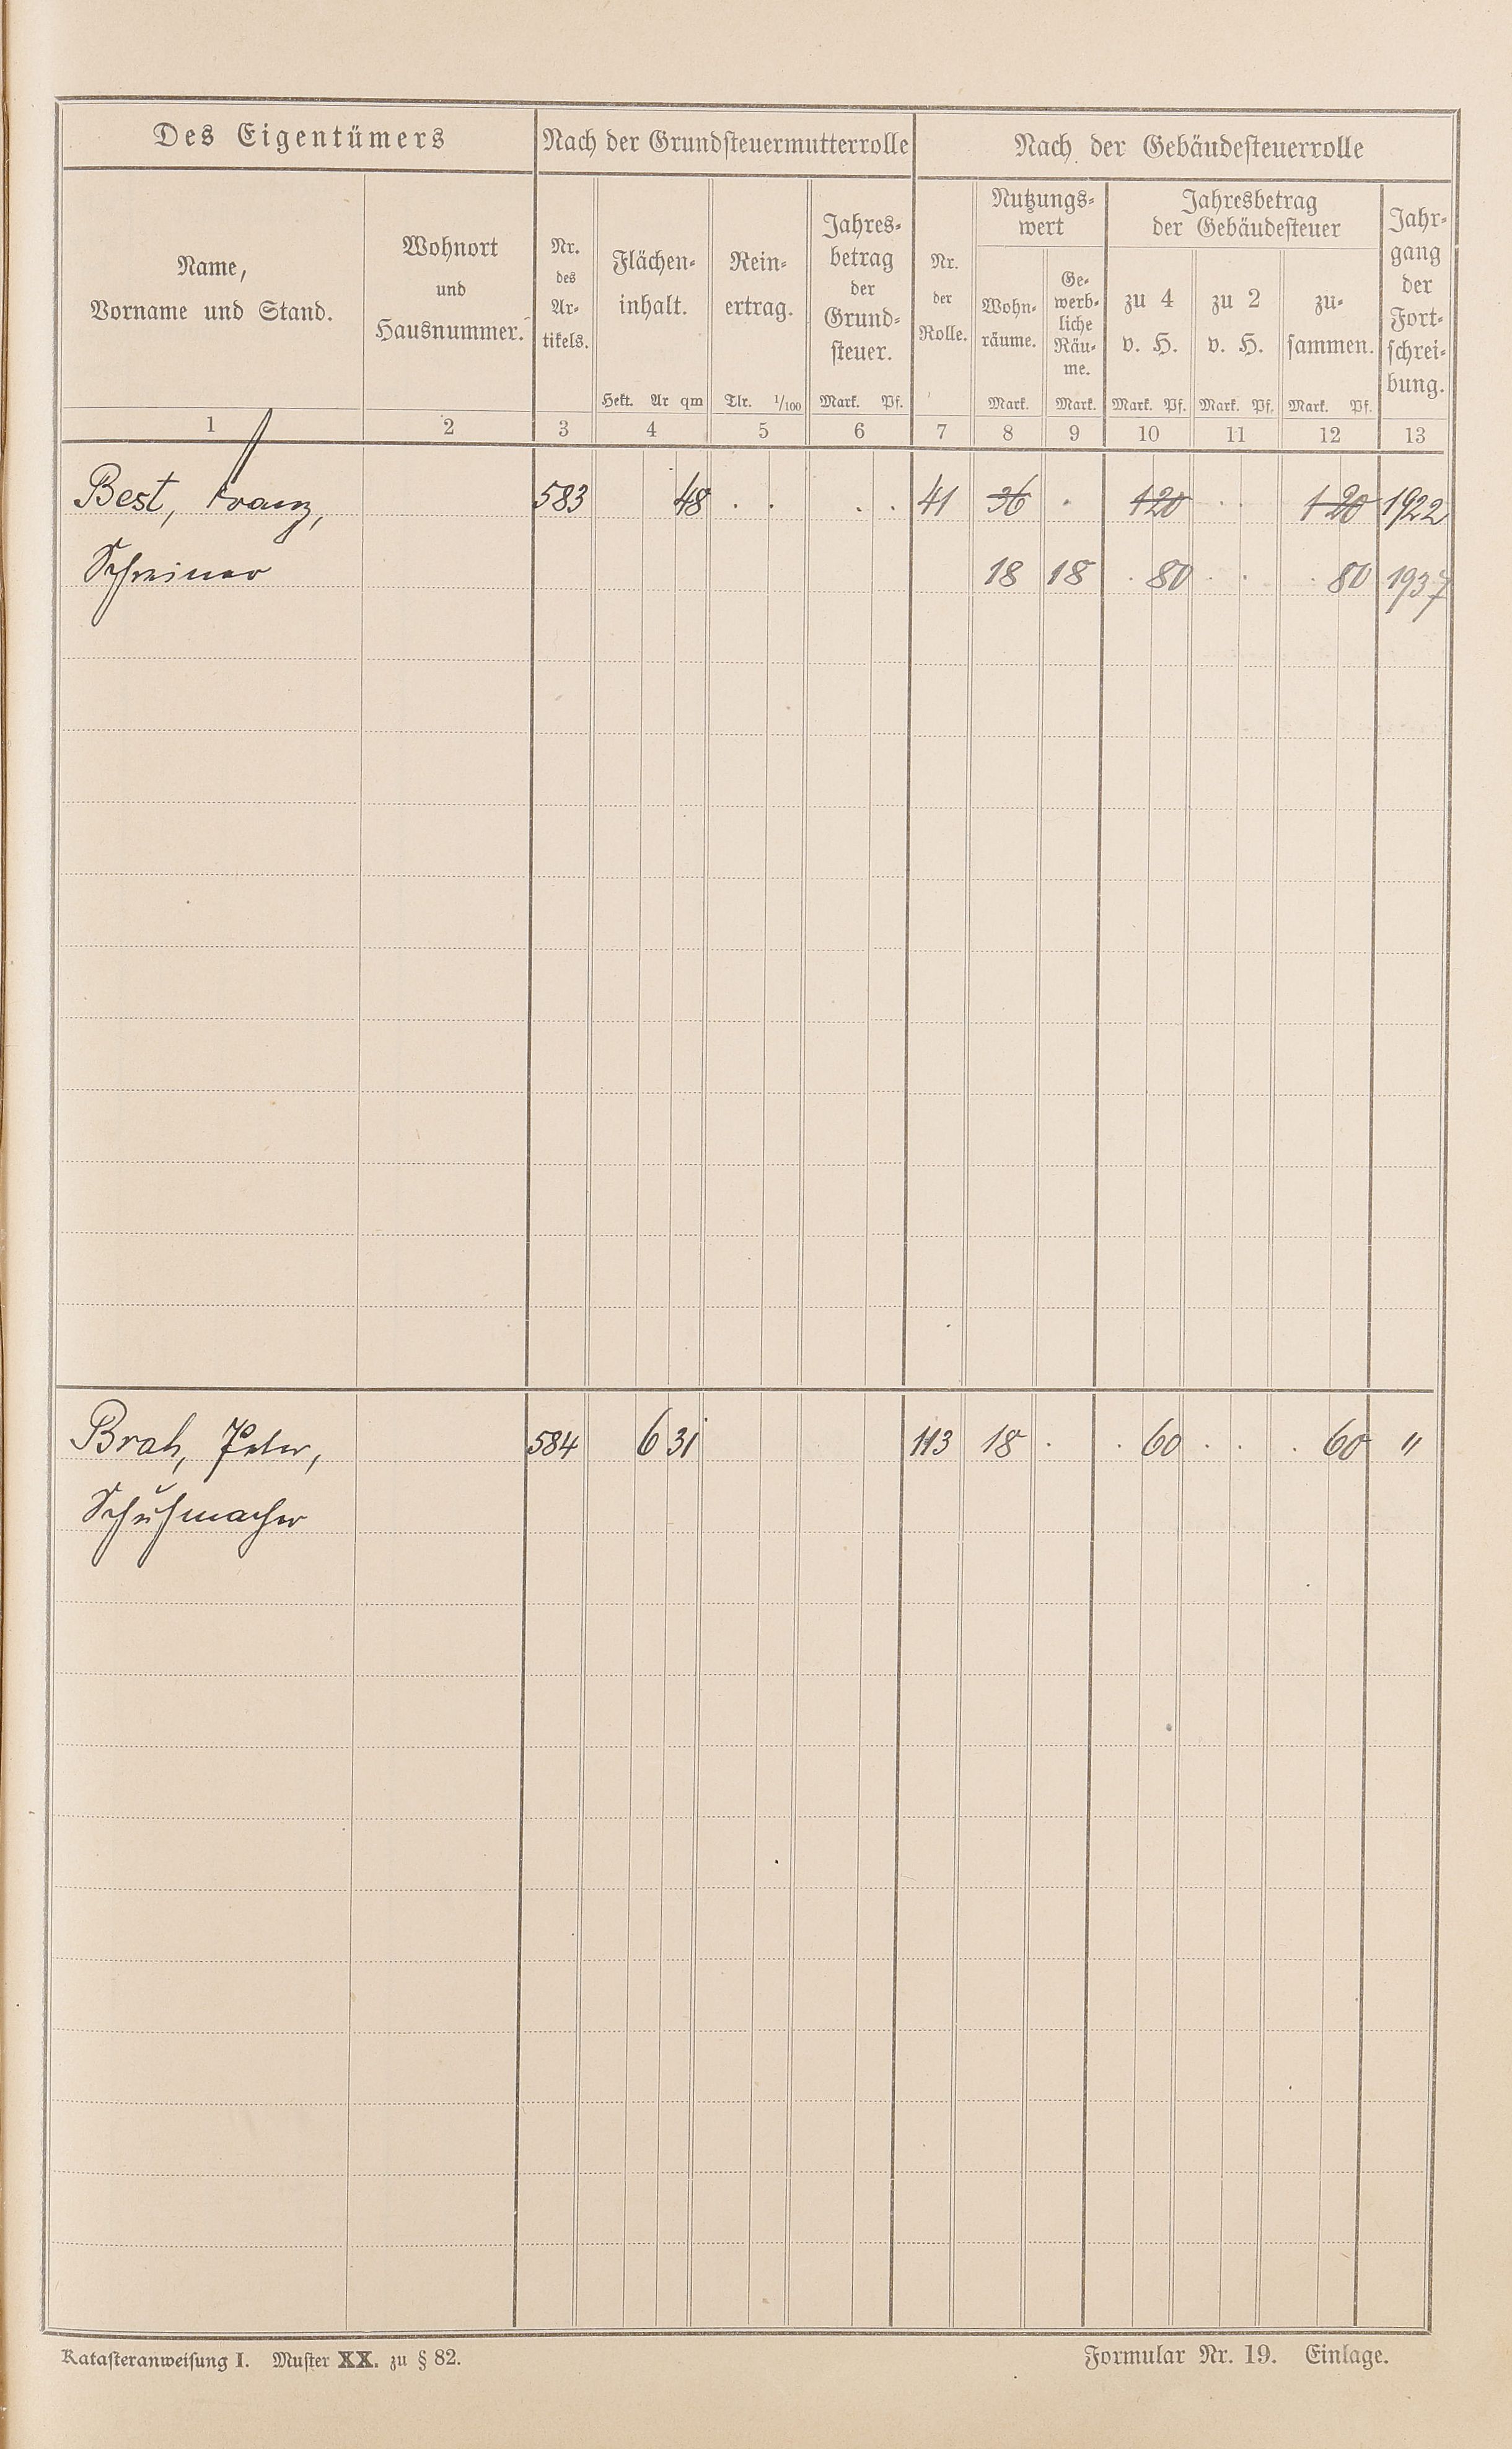 Des Eigentümers Nach der Grundsteuermutterrolle Nach der Gebäudesteuerrolle
Name,
Vorname und Stand.
Wohnort
und
Hausnummer.
Nr.
des
Ar-
tikels.
Flächen-
inhalt.
Hekt. Ar qm
Rein-
ertrag.
Tlr. 1/100
Jahres-
betrag
der
Grund-
steuer.
Mark. Pf.
Nr.
der
Rolle.
Nutzungs-
wert
Wohn-
räume.
Mark.
Ge-
werb-
liche
Räu-
me.
Mark.
Jahresbetrag
der Gebäudesteuer
zu 4
v. H.
Mark. Pf.
zu 2
v. H.
Mark. Pf.
zu-
sammen.
Mark. Pf.
Jahr-
gang
der
Fort-
schrei-
bung.
1 2 3 4 5 6 7 8 9 10 11 12 13
Best, Franz, 583 48 . . . . 41 36 . 1 20 . . 1 20 1922
Schreiner 18 18 . 80 . . . 80 1937
Brah, Peter, 584 6 31 113 18 . . 60 . . . 60 "
Schuhmacher
Katasteranweisung I. Muster XX. zu § 82. Formular Nr. 19. Einlage.